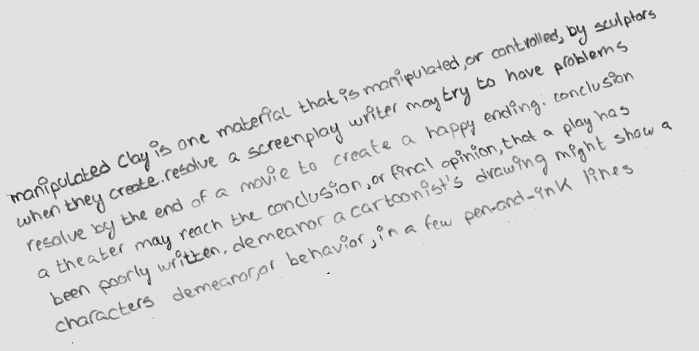 manipulated Clay is one material that is manipulated, or controlled, by sculptors
when they create. resolve a screenplay writer may try to have problems
resolve by the end of a movie to create a happy ending. conclusion
a theater may reach the conclusion, or final opinion, that a play has
been poorly written. demeanor a cartoonist's drawing might show a
characters demeanor, or behavior, in a few pen-and-ink lines